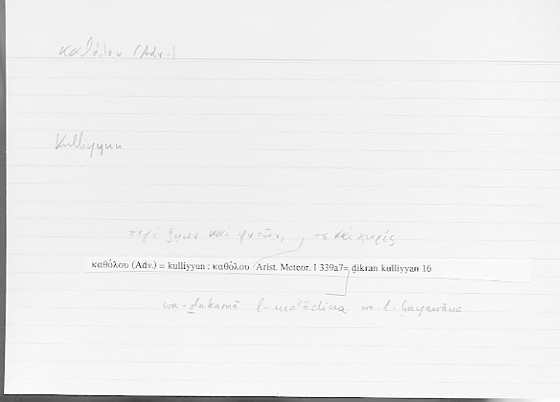 καθόλου (Adv.)
Kulliyyun
περὶ ζῴων καὶ φυτῶν, τε καὶ χωρίς
καθόλου (Adv.) = kulliyyun : καθόλου Arist. Meteor. I 339a7= ḏikran kulliyyan 16
wa-ḏakarnā l-maʿādina wa-l-ḥayawāna